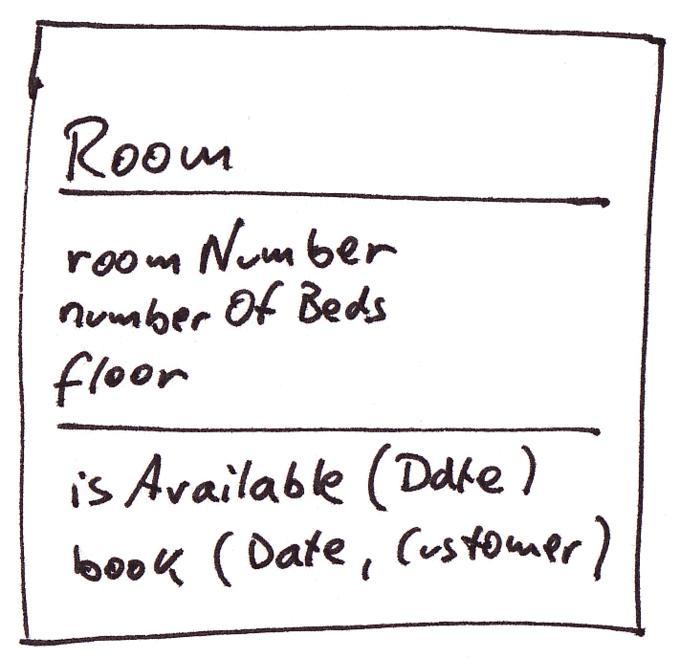 Room
roomNumber
numberOfBeds
floor
isAvailable (Date)
book (Date, Customer)